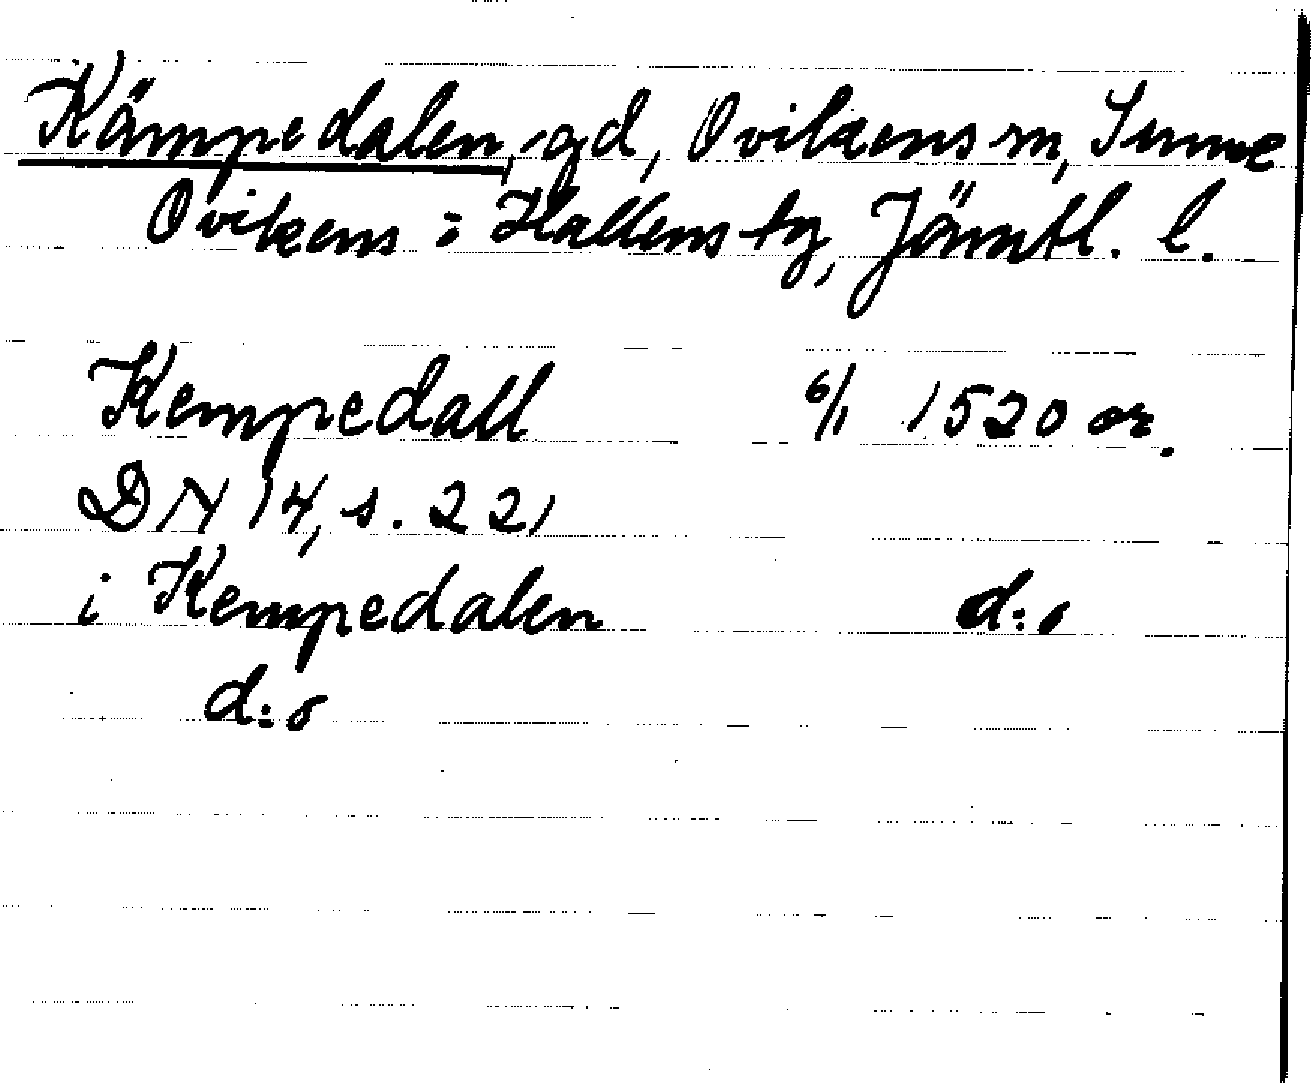 Kämpedalen, gd, Ovikens sn, Sunne
Ovikens o Hallens tg, Jämtl. l.
Kempedall 6/1 1520 or.
DN 14, s. 221
i Kempedalen d:o
d:o